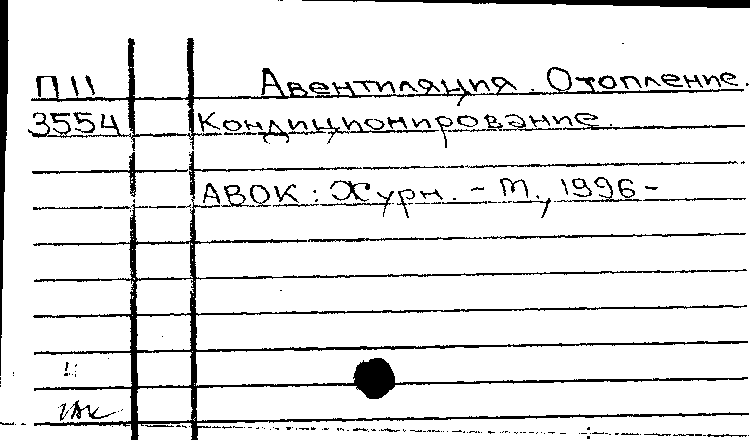 П 11 Авентиляция. Отопление.
3554 Кондиционирование.
АВОК: Журн. - М., 1996 -